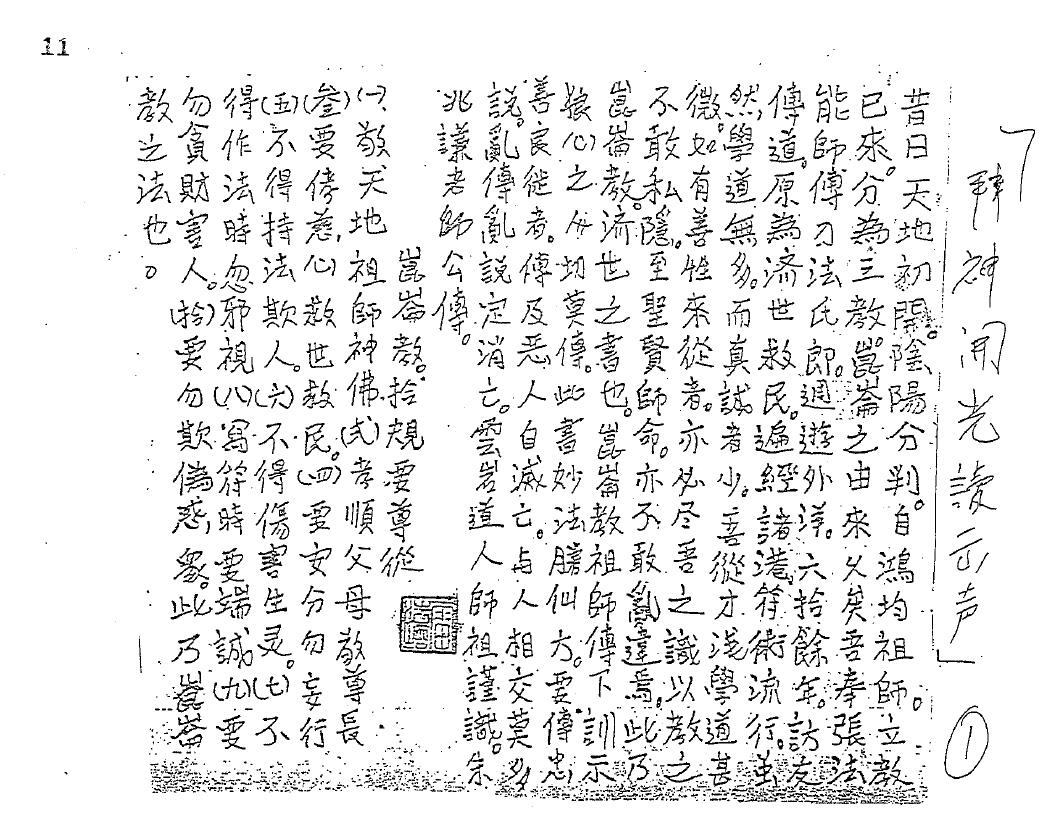 11
神開光讀示声
①
昔日天地初開。陰陽分判。自鴻均祖師。立教
已來。分為三教。崑崙之由來乂矣吾奉張法
能師傅刀法氏郎。週遊外洋。六拾餘年。訪友
傳道。原為済世救民。遍經諸港符術流行。虽
然學道無多。而真誠者少。吾從才浅學道甚
微。如有善性來從者。亦必尽吾之識以教之
不敢私隱。至聖賢師命。亦不敢亂違焉。此乃
崑崙教。流世之書也。崑崙教祖師傳下訓示
狼心之人切莫傳。此書妙法勝仙方。要傳忠
善良徙者。傳及恶人自滅亡。与人相交莫多
說。亂傳亂說定消亡。雲岩道人師祖謹識。余
兆謙老師公傳。
崑崙教。拾規要尊從
(一)、敬天地祖師神佛(弍)孝順父母敬尊長
(叁)要慈心救世教民。(四)要安分勿妄行
(五)不得持法欺人。(六)不得傷害生灵。(七)不
得作法時忽邪視(八)寫符時要端誠(九)要
勿貪財害人。(拾)要勿欺偽惑衆。此乃崑崙
教之法也。